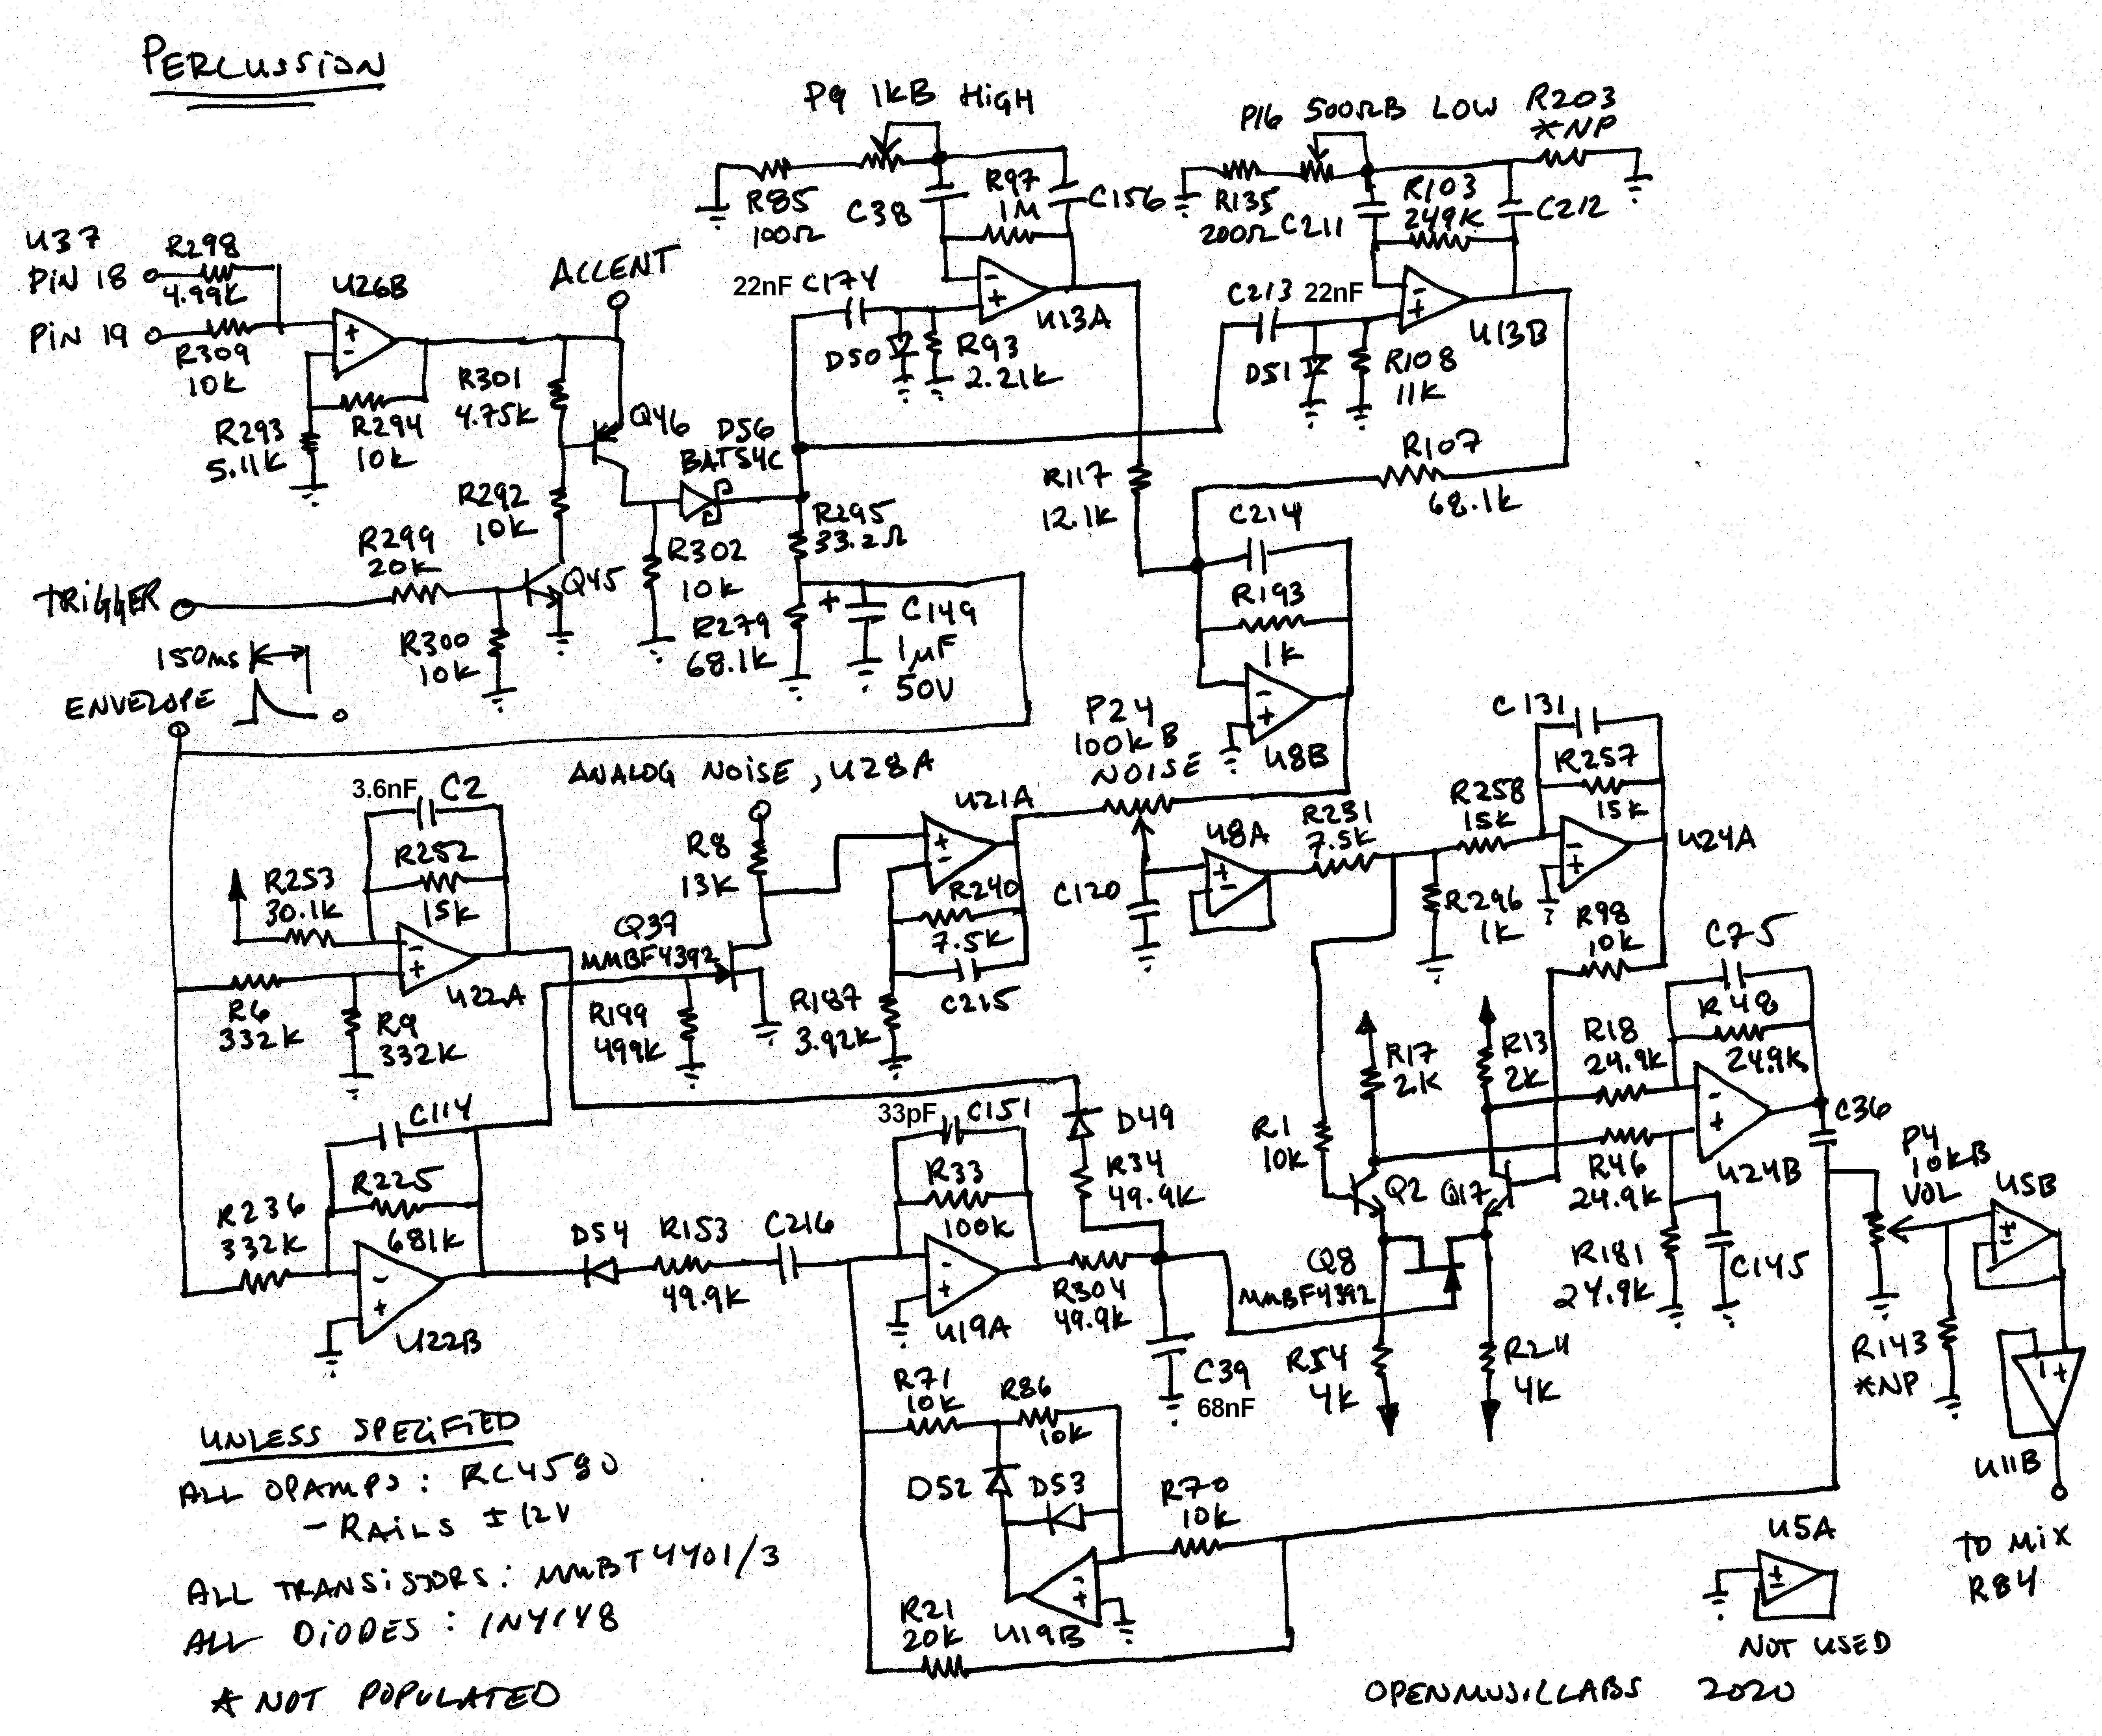 PERCUSSION
P9 1kB HIGH
P16 500ΩB LOW
R203
*NP
R85
100Ω
C38
R97
1M
C156
R135
200Ω
C211
R103
249K
C212
U37
PIN 18
R298
4.99K
PIN 19
R309
10K
U26B
+
-
ACCENT
22nF C174
-
+
U13A
C213 22nF
-
+
U13B
D50
R93
2.21K
D51
R108
11K
R301
4.75K
R293
5.11K
R294
10K
Q46
D56
BAT54C
R107
68.1K
R117
12.1K
R292
10K
R295
33.2Ω
C214
R299
20K
R302
10K
R193
1K
TRIGGER
Q45
R300
10K
R279
68.1K
+
C149
1µF
50V
150ms
ENVELOPE
-
+
U8B
P24
100kB
NOISE
C131
R257
15K
ANALOG NOISE, U28A
3.6nF C2
U21A
+
-
R8
13K
R252
15K
R253
30.1K
U8A
+
-
R231
7.5K
R258
15K
-
+
U24A
R240
7.5K
C120
R296
1K
R98
10K
C75
Q37
MMBF4392
-
+
U22A
R6
332K
R9
332K
R199
499K
R187
3.92K
C215
R17
2K
R13
2K
R18
24.9K
R48
24.9K
C114
33pF C151
D49
R1
10K
-
+
U24B
C36
R46
24.9K
P4
10kB
VOL
U5B
+
-
R225
681K
R236
332K
R33
100K
R34
49.9K
Q2
Q17
D54
R153
49.9K
C216
-
+
U19A
R304
49.9K
Q8
MMBF4392
R181
24.9K
C145
-
+
U22B
C39
68nF
R54
4K
R24
4K
R143
*NP
-
+
U11B
TO MIX
R84
R71
10K
R86
10K
D52
D53
R70
10K
-
+
U19B
R21
20K
UNLESS SPECIFIED
ALL OPAMPS: RC4580
- RAILS ±12V
ALL TRANSISTORS: MMBT4401/3
ALL DIODES: 1N4148
* NOT POPULATED
U5A
+
-
NOT USED
OPENMUSICLABS 2020